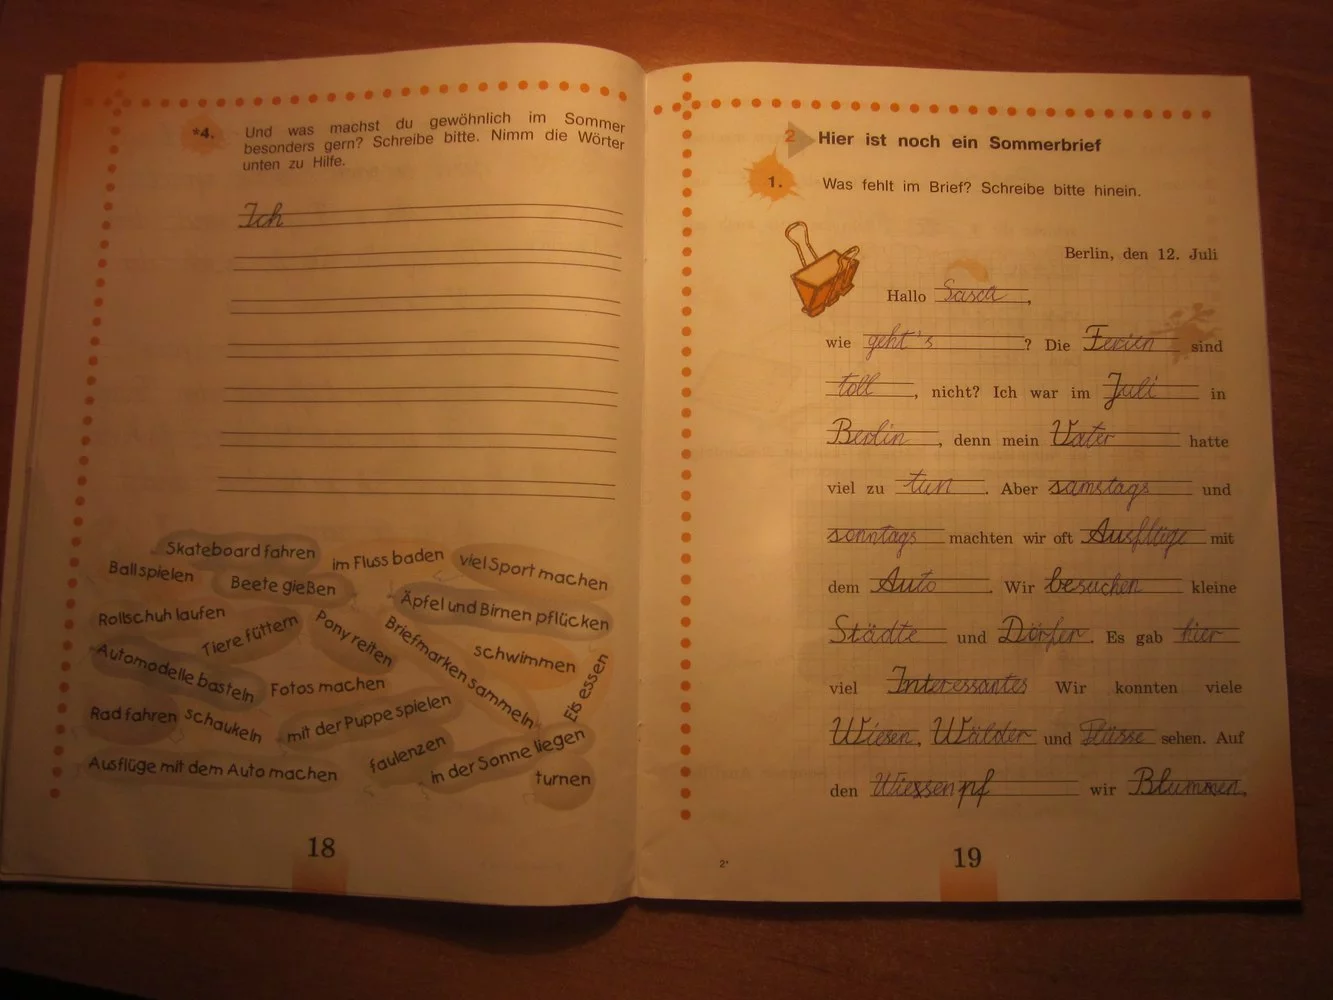 *4. Und was machst du gewöhnlich im Sommer
besonders gern? Schreibe bitte. Nimm die Wörter
unten zu Hilfe.
Ich
Skateboard fahren
im Fluss baden
viel Sport machen
Ball spielen
Beete gießen
Äpfel und Birnen pflücken
Rollschuh laufen
Tiere füttern
Pony reiten
Briefmarken sammeln
schwimmen
Eis essen
Automodelle basteln
Fotos machen
Rad fahren
schaukeln
mit der Puppe spielen
faulenzen
in der Sonne liegen
Ausflüge mit dem Auto machen
turnen
18
2 Hier ist noch ein Sommerbrief
1. Was fehlt im Brief? Schreibe bitte hinein.
Berlin, den 12. Juli
Hallo Sasca,
wie geht's ? Die Ferien sind
toll, nicht? Ich war im Juli in
Berlin, denn mein Vater hatte
viel zu tun. Aber samstags und
sonntags machten wir oft Ausflüge mit
dem Auto. Wir besuchen kleine
Städte und Dörfer. Es gab hier
viel Interessantes Wir konnten viele
Wiesen, Wälder und Flüsse sehen. Auf
den Wiessen pf wir Blummen.
2*
19